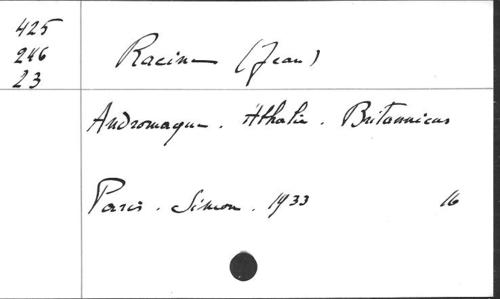 425
246
23
Racine (Jean)
Andromaque. Athalie. Britannicus
Paris. Simon. 1933 16